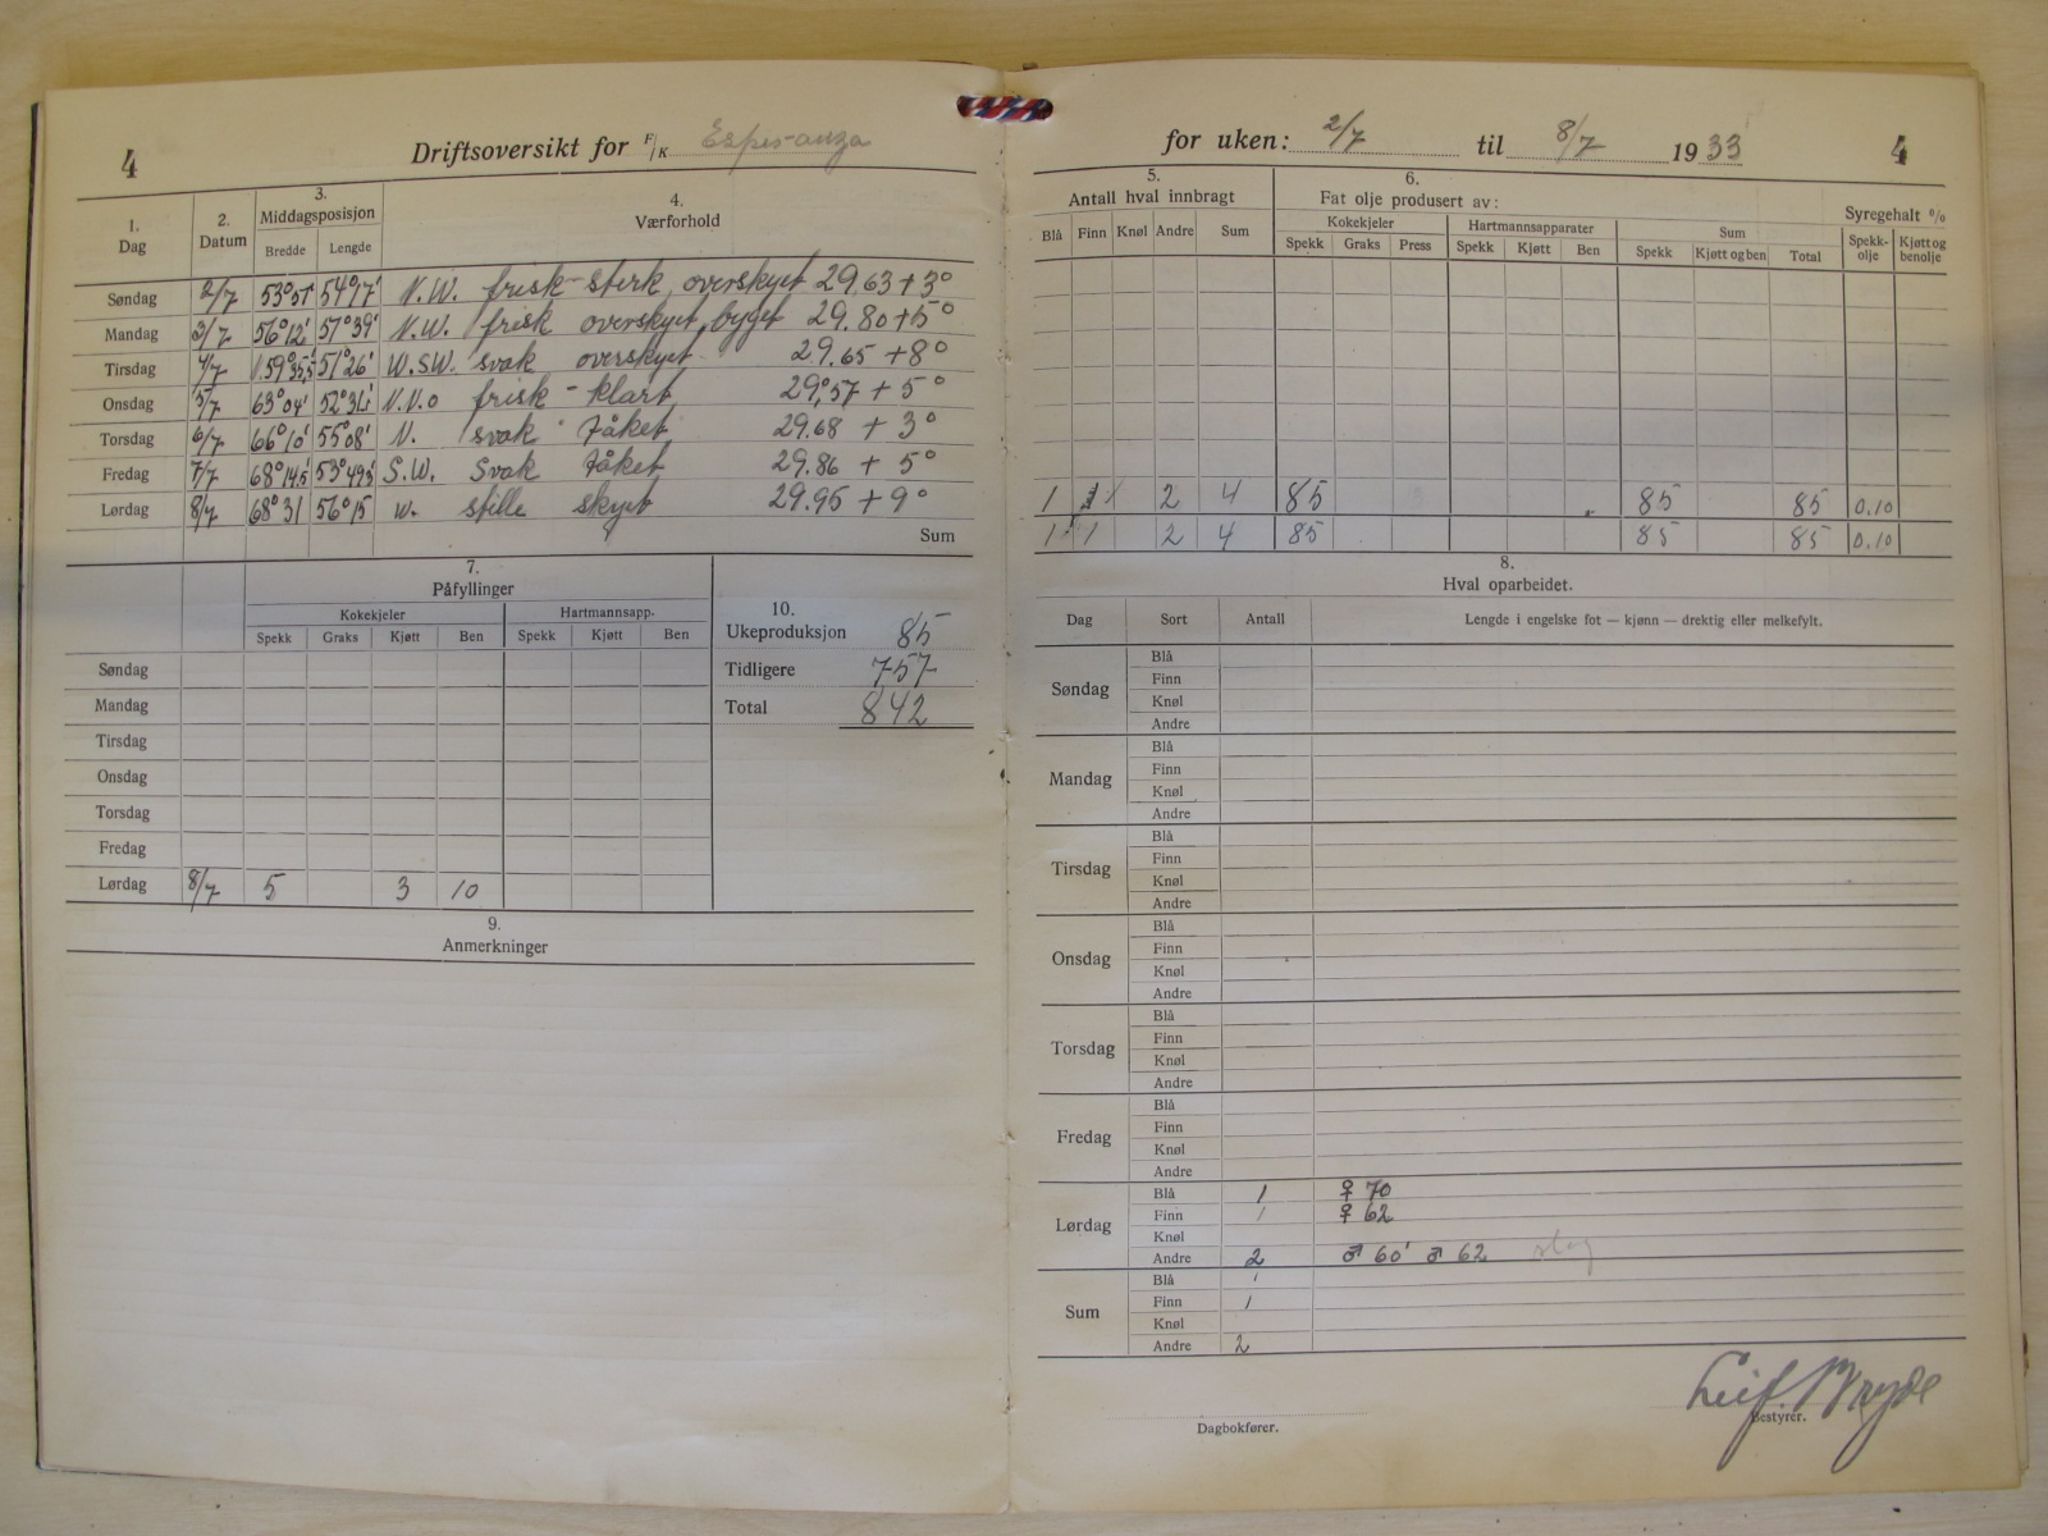 4 Driftsoversikt for F/K Esperanza
for uken: 2/7 til 8/7 1933 4
1. Dag 2. Datum 3. Middagsposisjon Bredde Lengde 4. Værforhold
Søndag 2/7 53°51' 54°17' N.W. frisk-sterk, overskyet 29.63 + 3°
Mandag 3/7 56°12' 57°39' N.W. frisk overskyet, byget 29.80 + 5°
Tirsdag 4/7 59°35,5' 51°26' W.SW. svak overskyet 29.65 + 8°
Onsdag 5/7 63°04' N.N.O frisk - klart 29,57 + 5°
Torsdag 6/7 66°10' 55°08' N. svak tåket 29.68 + 3°
Fredag 7/7 68°14.5' 53°49,5' S.W. Svak tåket 29.86 + 5°
Lørdag 8/7 68°31 56°15 w. stille skyet 29.95 + 9°
Sum
5. Antall hval innbragt 6. Fat olje produsert av: Syregehalt %
Kokekjeler Hartmannsapparater Sum
Blå Finn Knøl Andre Sum Spekk Graks Press Spekk Kjøtt Ben Spekk Kjøtt og ben Total Spekk-olje Kjøtt og benolje
1 1 2 4 85 85 85 0.10
1 1 2 4 85 85 85 0.10
7. Påfyllinger
Kokekjeler Hartmannsapp.
Spekk Graks Kjøtt Ben Spekk Kjøtt Ben
Søndag
Mandag
Tirsdag
Onsdag
Torsdag
Fredag
Lørdag 8/7 5 3 10
10.
Ukeproduksjon 85
Tidligere 757
Total 842
9.
Anmerkninger
8.
Hval oparbeidet.
Dag Sort Antall Lengde i engelske fot — kjønn — drektig eller melkefylt.
Søndag
Blå
Finn
Knøl
Andre
Mandag
Blå
Finn
Knøl
Andre
Tirsdag
Blå
Finn
Knøl
Andre
Onsdag
Blå
Finn
Knøl
Andre
Torsdag
Blå
Finn
Knøl
Andre
Fredag
Blå
Finn
Knøl
Andre
Lørdag
Blå 1 ♀ 70
Finn 1 ♀ 62
Knøl
Andre 2 ♂ 60' ♂ 62
Sum
Blå 1
Finn 1
Knøl
Andre 2
Leif Bryde
Dagbokfører. Bestyrer.